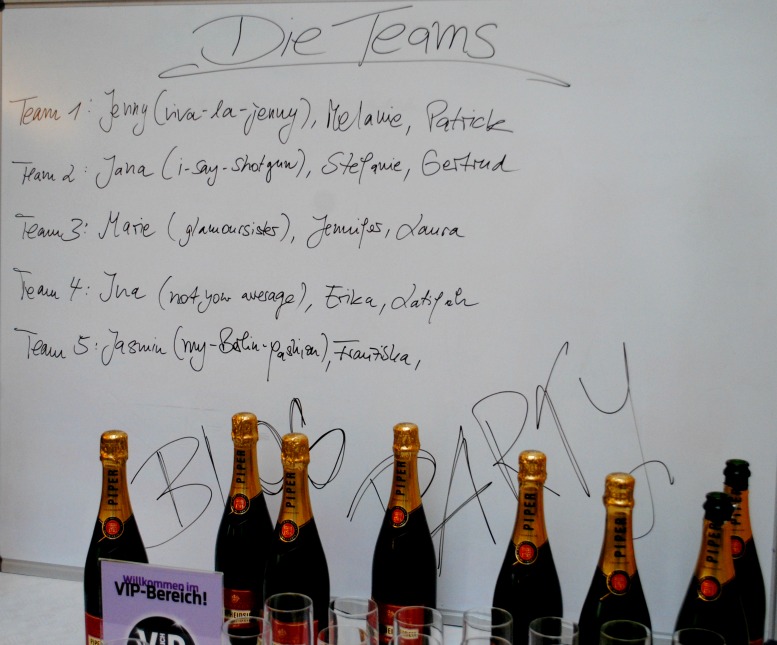 Die Teams
Team 1: Jenny (viva-la-jenny), Melanie, Patrick
Team 2: Jana (i-say-shotgun), Stefanie, Gertrud
Team 3: Marie (glamoursister), Jennifer, Laura
Team 4: Ina (not your average), Erika, Latifah
Team 5: Jasmin (my-Berlin-fashion), Franziska,
BLOG PARTY
PIPER
PIPER
PIPER
PIPER
PIPER
PIPER
PIPER
PIPER
Willkommen im
VIP-Bereich!